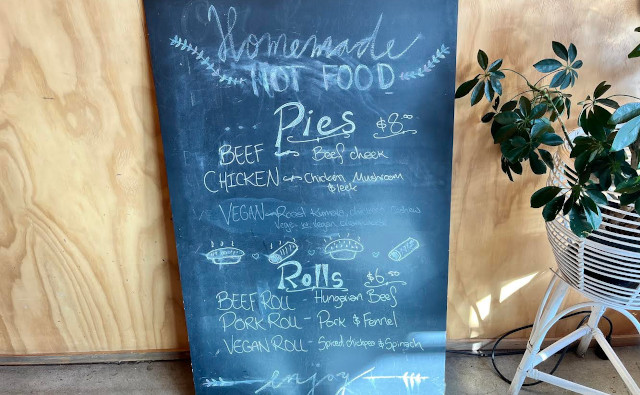 Homemade
HOT FOOD
Pies $8.00
BEEF Beef cheek
CHICKEN Chicken Mushroom
& leek
VEGAN Roast
Rolls $6.00
BEEF ROLL - Hungarian Beef
PORK ROLL - Pork & Fennel
VEGAN ROLL - Spiced chickpea & Spinach
enjoy